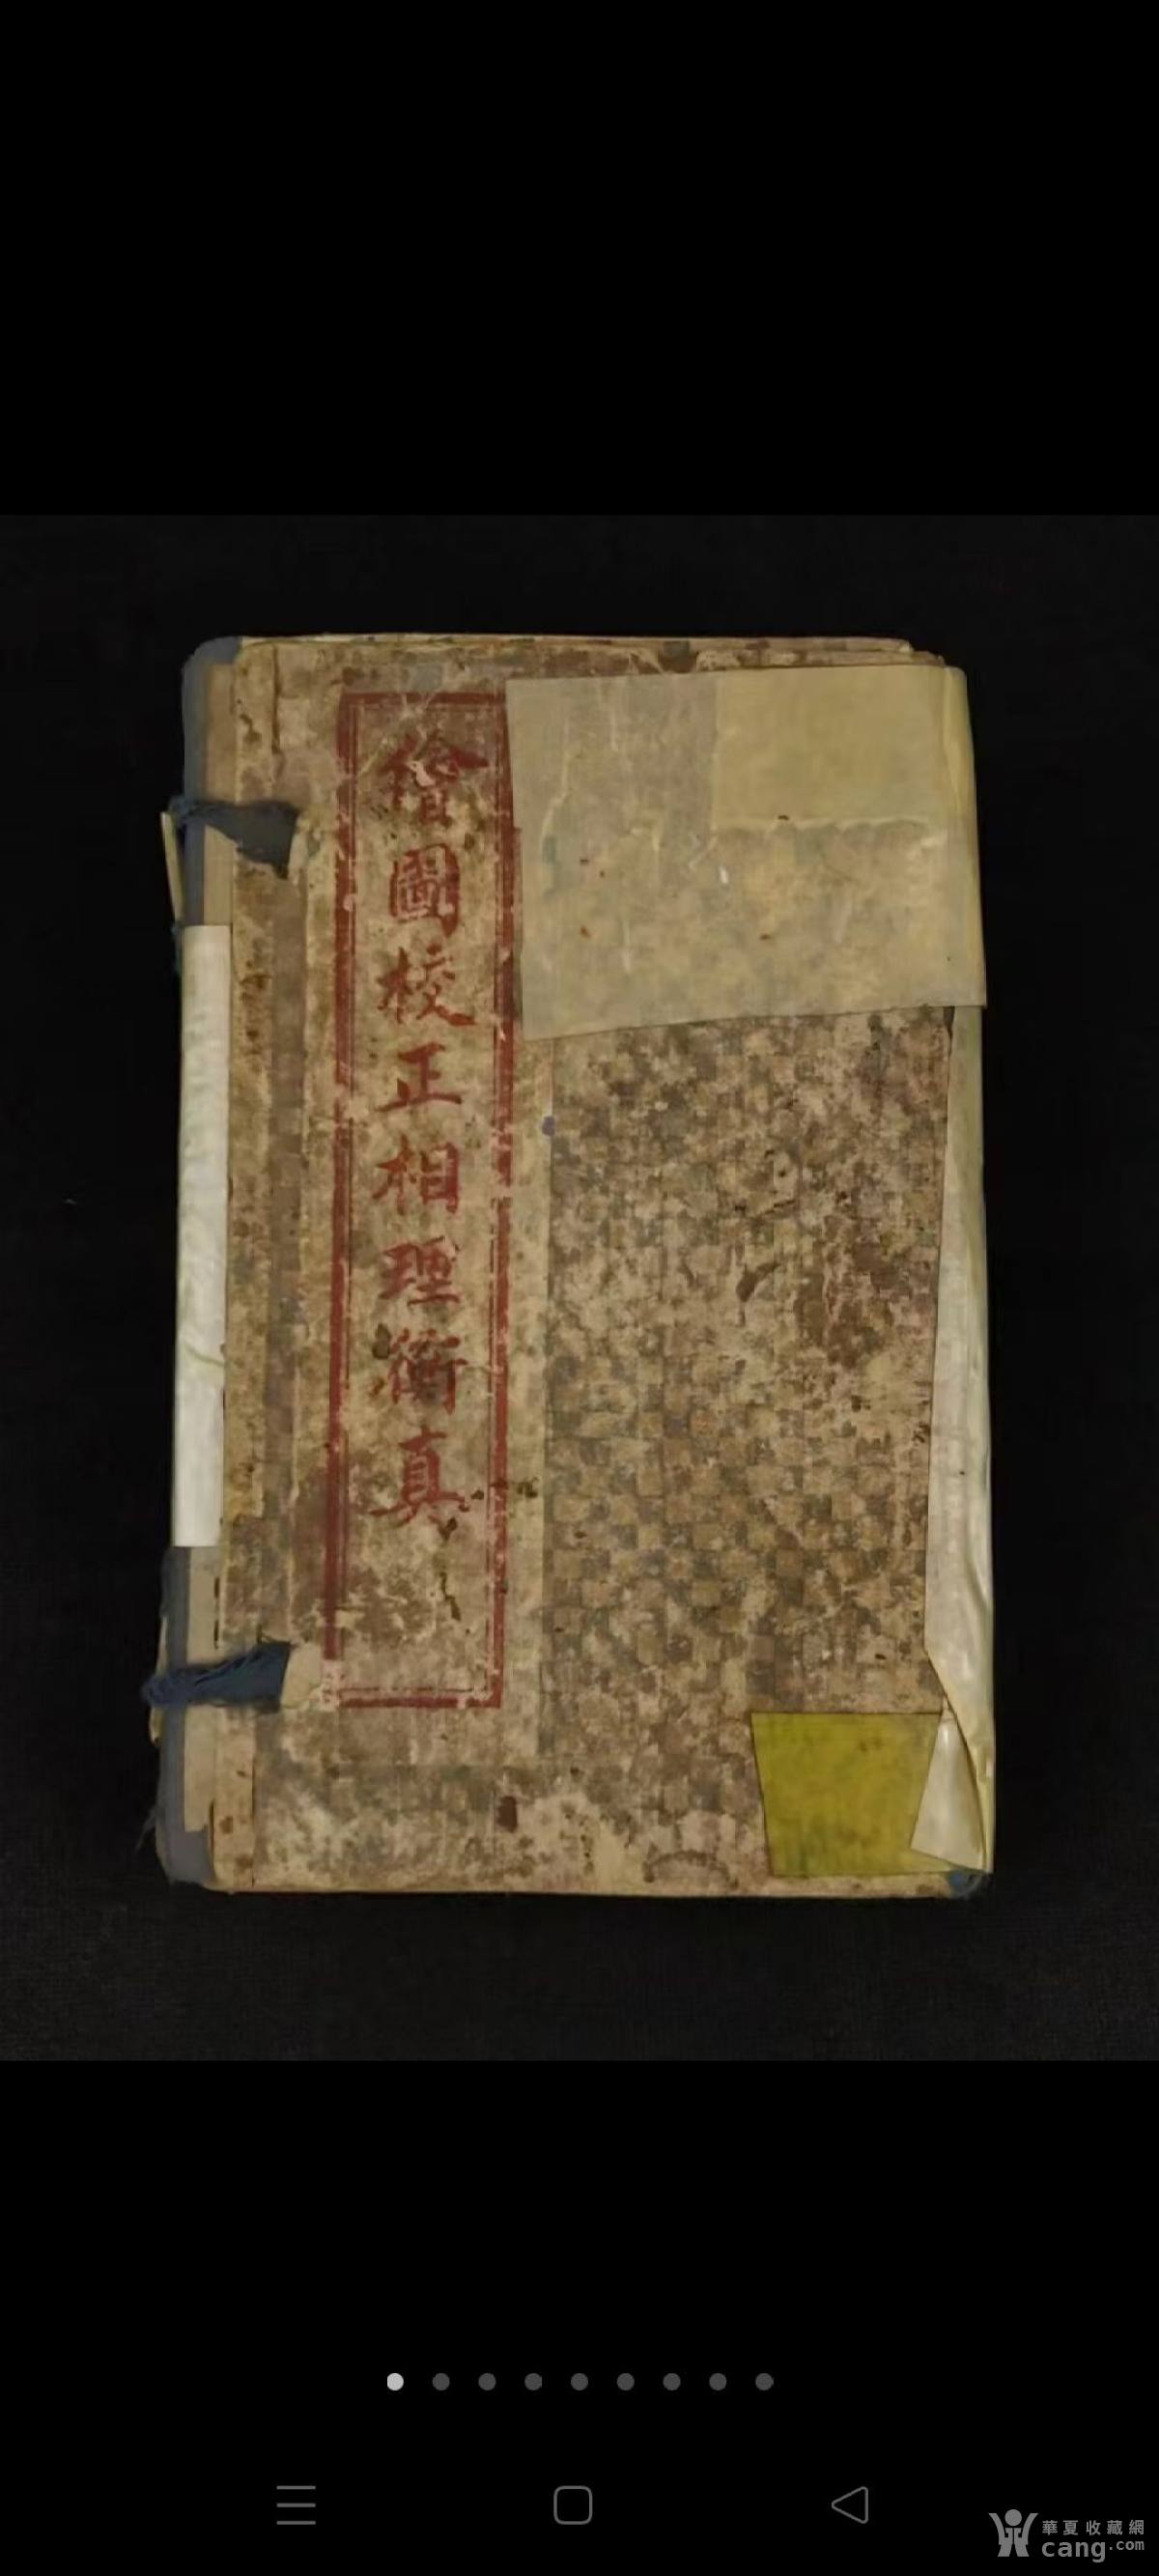 繪圖校正相理衡真
華夏收藏網
cang.com